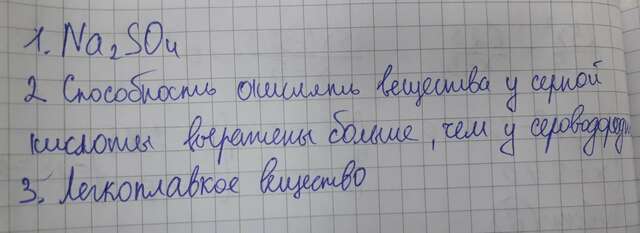 1. Na₂SO₄
2 Способность окислять вещества у серной
кислоты выражены больше, чем у сероводорода
3. Легкоплавкое вещество